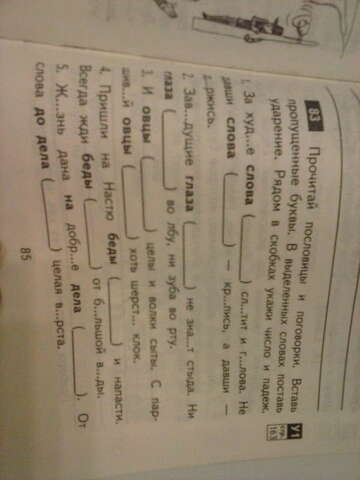 83 Прочитай пословицы и поговорки. Вставь У1
пропущенные буквы. В выделенных словах поставь упр. 163
ударение. Рядом в скобках укажи число и падеж.
1. За худ...е слова (        ) сл...тит и г...лова. Не
давши слова (        ) — кр...пись, а давши —
д...ржись.
2. Зав...дущие глаза (        ) не зна...т стыда. Ни
глаза (        ) во лбу, ни зуба во рту.
3. И овцы (        ) целы и волки сыты. С пар-
шив...й овцы (        ) хоть шерст... клок.
4. Пришли на Настю беды (        ) и напасти.
Всегда жди беды (        ) от б...льшой в...ды.
5. Ж...знь дана на добр...е дела (        ). От
слова до дела (        ) целая в...рста.
85